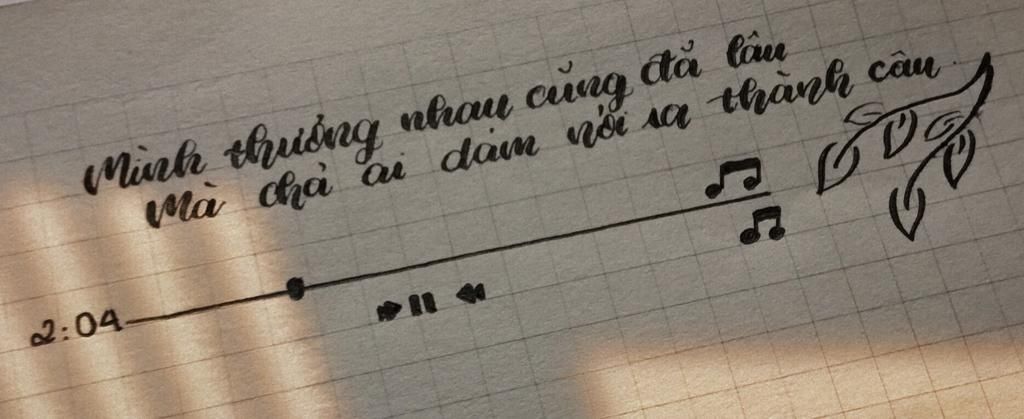 Mình thương nhau cũng đã lâu
Mà chả ai dám nói ra thành câu
2:04